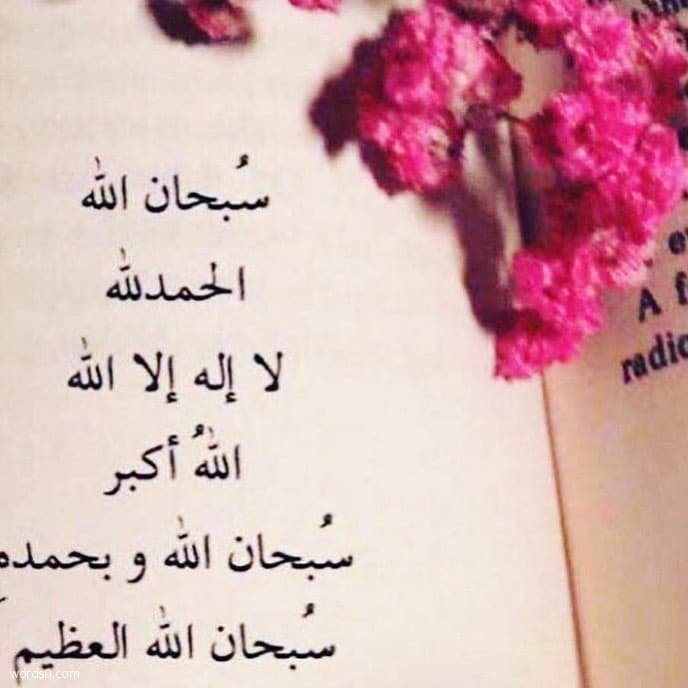 سُبحان الله
الحمدلله
لا إله إلا الله
اللهُ أكبر
سُبحان الله و بحمدهِ
سُبحان الله العظيم
A f
radio
wordsn.com